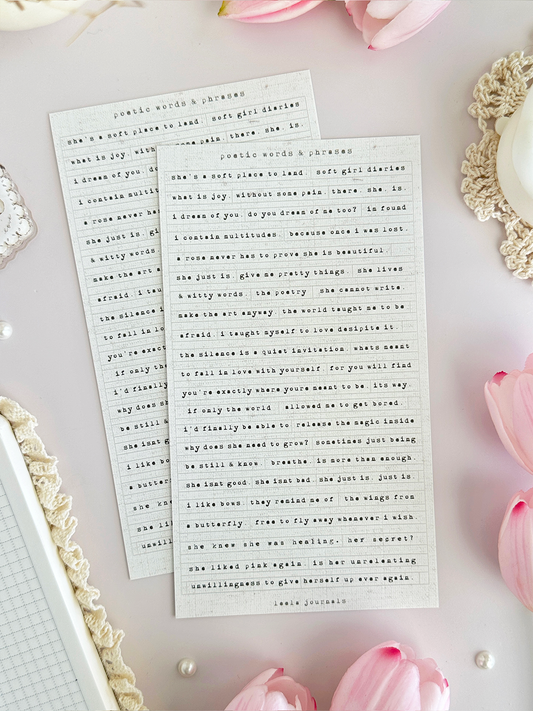 poetic words & phrases
she's a soft place to land. soft girl diaries
what is joy. with some pain. there. she. is.
i dream of you. do
i contain multit
a rose never ha
she just is. gi
& witty words.
make the art a
afraid. i tau
the silence i
to fall in lo
you're exact
if only th
i'd finally
why does sh
be still &
she isnt g
i like bo
a butter
she kn
she li
unwill
poetic words & phrases
she's a soft place to land. soft girl diaries
what is joy. without some pain. there. she. is.
i dream of you. do you dream of me too? im found
i contain multitudes. because once i was lost.
a rose never has to prove she is beautiful.
she just is. give me pretty things. she lives
& witty words. the poetry she cannot write.
make the art anyway. the world taught me to be
afraid. i taught myself to love desipite it.
the silence is a quiet invitation. whats meant
to fall in love with yourself. for you will find
you're exactly where youre meant to be. its way.
if only the world allowed me to get bored.
i'd finally be able to release the magic inside
why does she need to grow? sometines just being
be still & know. breathe. is more than enough.
she isnt good. she isnt bad. she just is. just is.
i like bows. they remind me of the wings from
a butterfly. free to fly away whenever i wish.
she knew she was healing. her secret?
she liked pink again. is her unrelenting
unwillingness to give herself up ever again.
leela journals